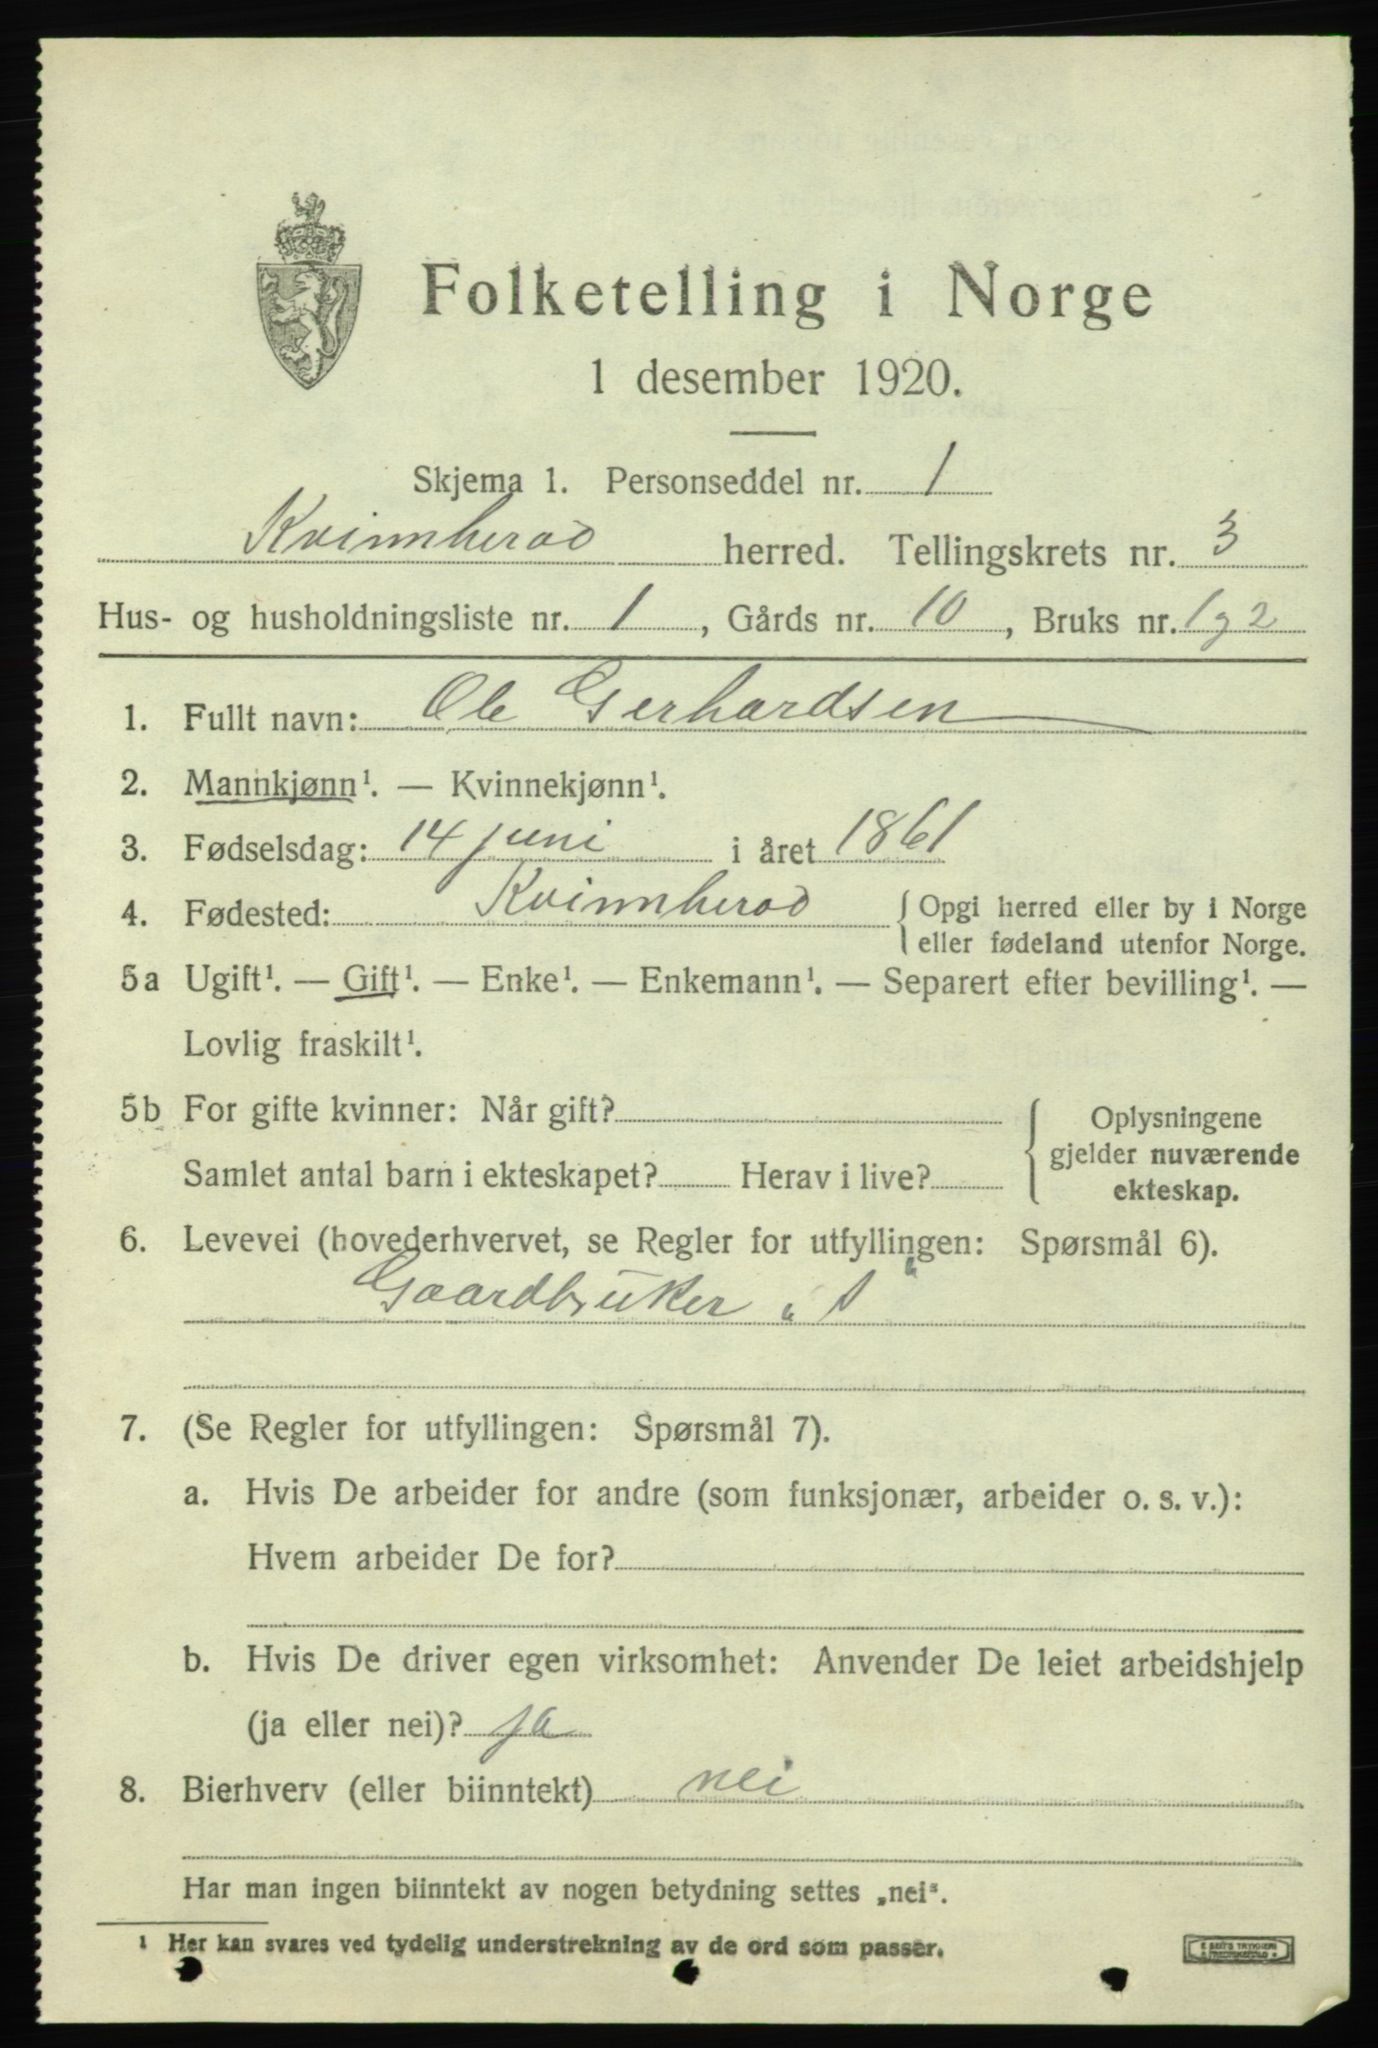 Folketelling i Norge
1 desember 1920.
Skjema 1. Personseddel nr. 1
Kvinnherad herred. Tellingskrets nr. 3
Hus- og husholdningsliste nr. 1, Gårds nr. 10, Bruks nr. 1 g 2
1. Fullt navn: Ole Gerhardsen
2. Mannkjønn¹. — Kvinnekjønn¹.
3. Fødselsdag: 14 juni i året 1861
4. Fødested: Kvinnherad { Opgi herred eller by i Norge
eller fødeland utenfor Norge.
5a Ugift¹. — Gift¹. — Enke¹. — Enkemann¹. — Separert efter bevilling¹. —
Lovlig fraskilt¹.
5b For gifte kvinner: Når gift?
Samlet antal barn i ekteskapet? Herav i live?
{ Oplysningene
gjelder nuværende
ekteskap.
6. Levevei (hovederhvervet, se Regler for utfyllingen: Spørsmål 6).
Gaardbruker „s“
7. (Se Regler for utfyllingen: Spørsmål 7).
a. Hvis De arbeider for andre (som funksjonær, arbeider o. s. v.):
Hvem arbeider De for?
b. Hvis De driver egen virksomhet: Anvender De leiet arbeidshjelp
(ja eller nei)? ja
8. Bierhverv (eller biinntekt) nei
Har man ingen biinntekt av nogen betydning settes „nei“.
¹ Her kan svares ved tydelig understrekning av de ord som passer.